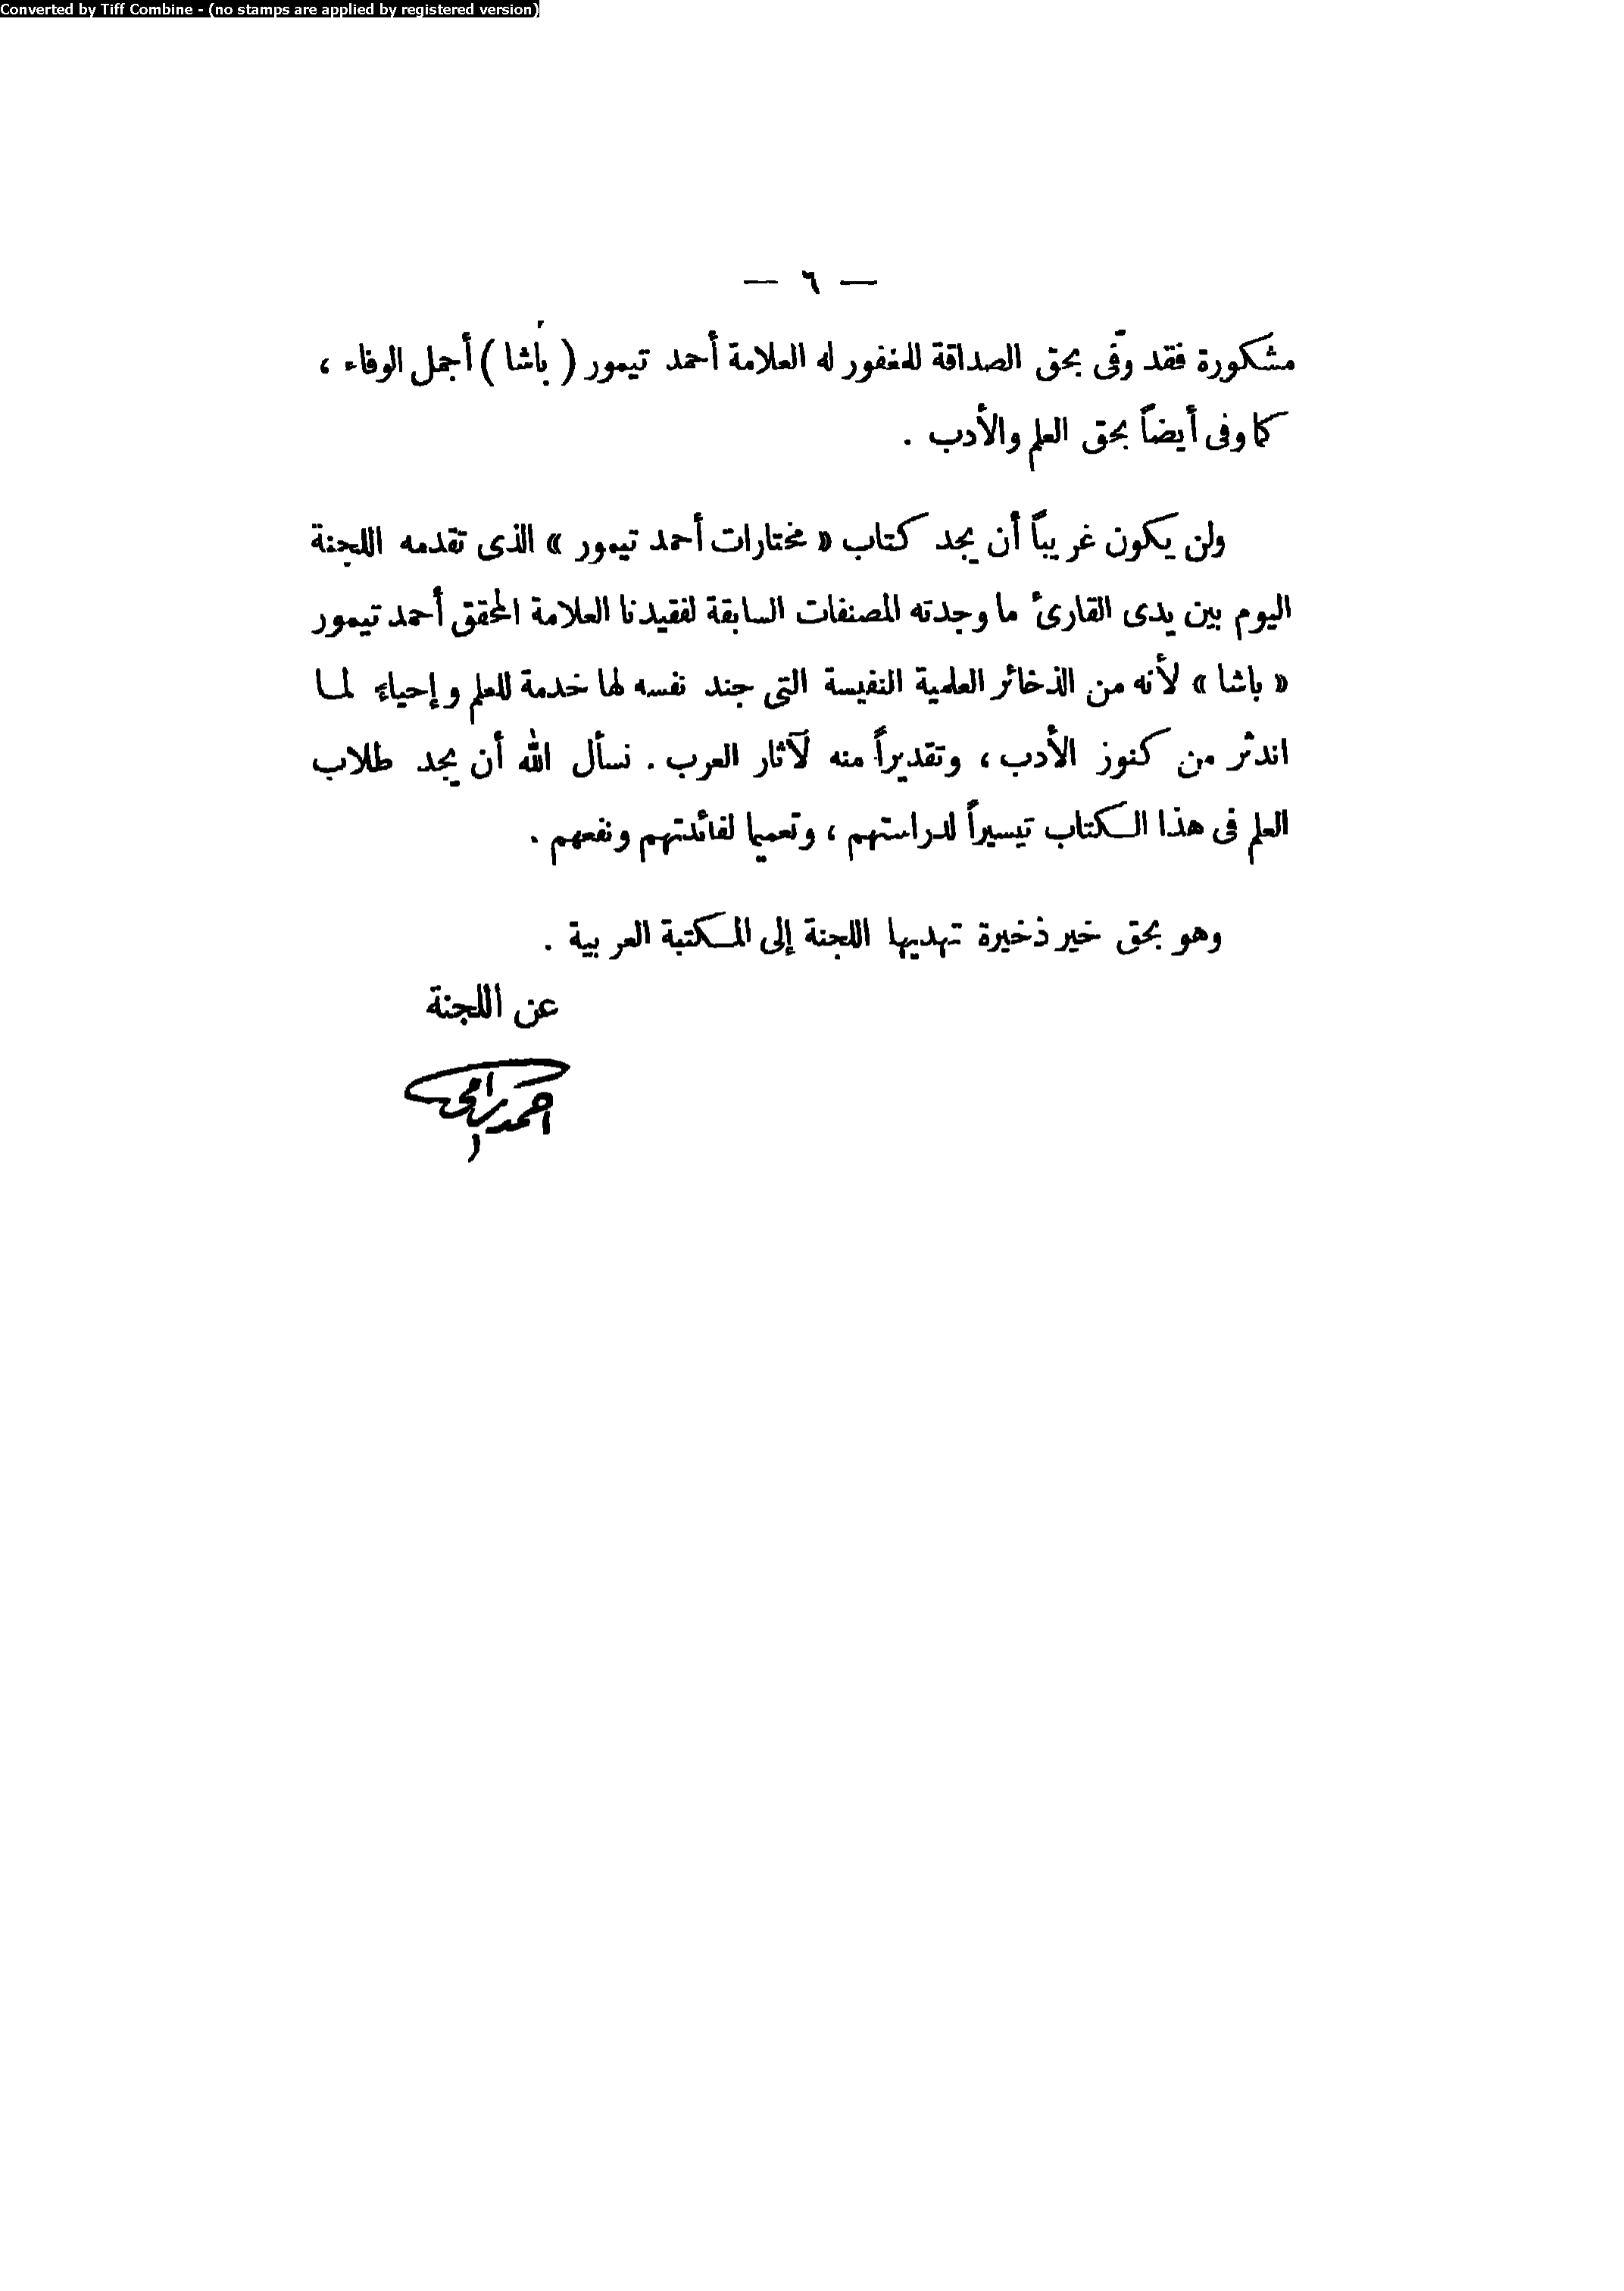 Converted by Tiff Combine - (no stamps are applied by registered version)
— ٦ —
مشكورة فقد وفّى بحق الصداقة للمغفور له العلامة أحمد تيمور ( باشا ) أجمل الوفاء ،
كما وفى أيضاً بحق العلم والأدب .
ولن يكون غريباً أن يجد كتاب « مختارات أحمد تيمور » الذى تقدمه اللجنة
اليوم بين يدى القارئ ما وجدته المصنفات السابقة لفقيدنا العلامة المحقق أحمد تيمور
« باشا » لأنه من الذخائر العلمية النفيسة التى جند نفسه لها خدمة للعلم وإحياء لما
اندثر من كنوز الأدب ، وتقديراً منه لآثار العرب . نسأل الله أن يجد طلاب
العلم فى هذا الكتاب تيسيراً لدراستهم ، وتعميما لفائدتهم ونفعهم .
وهو بحق خير ذخيرة تهديها اللجنة إلى المكتبة العربية .
عن اللجنة
احمد رامى